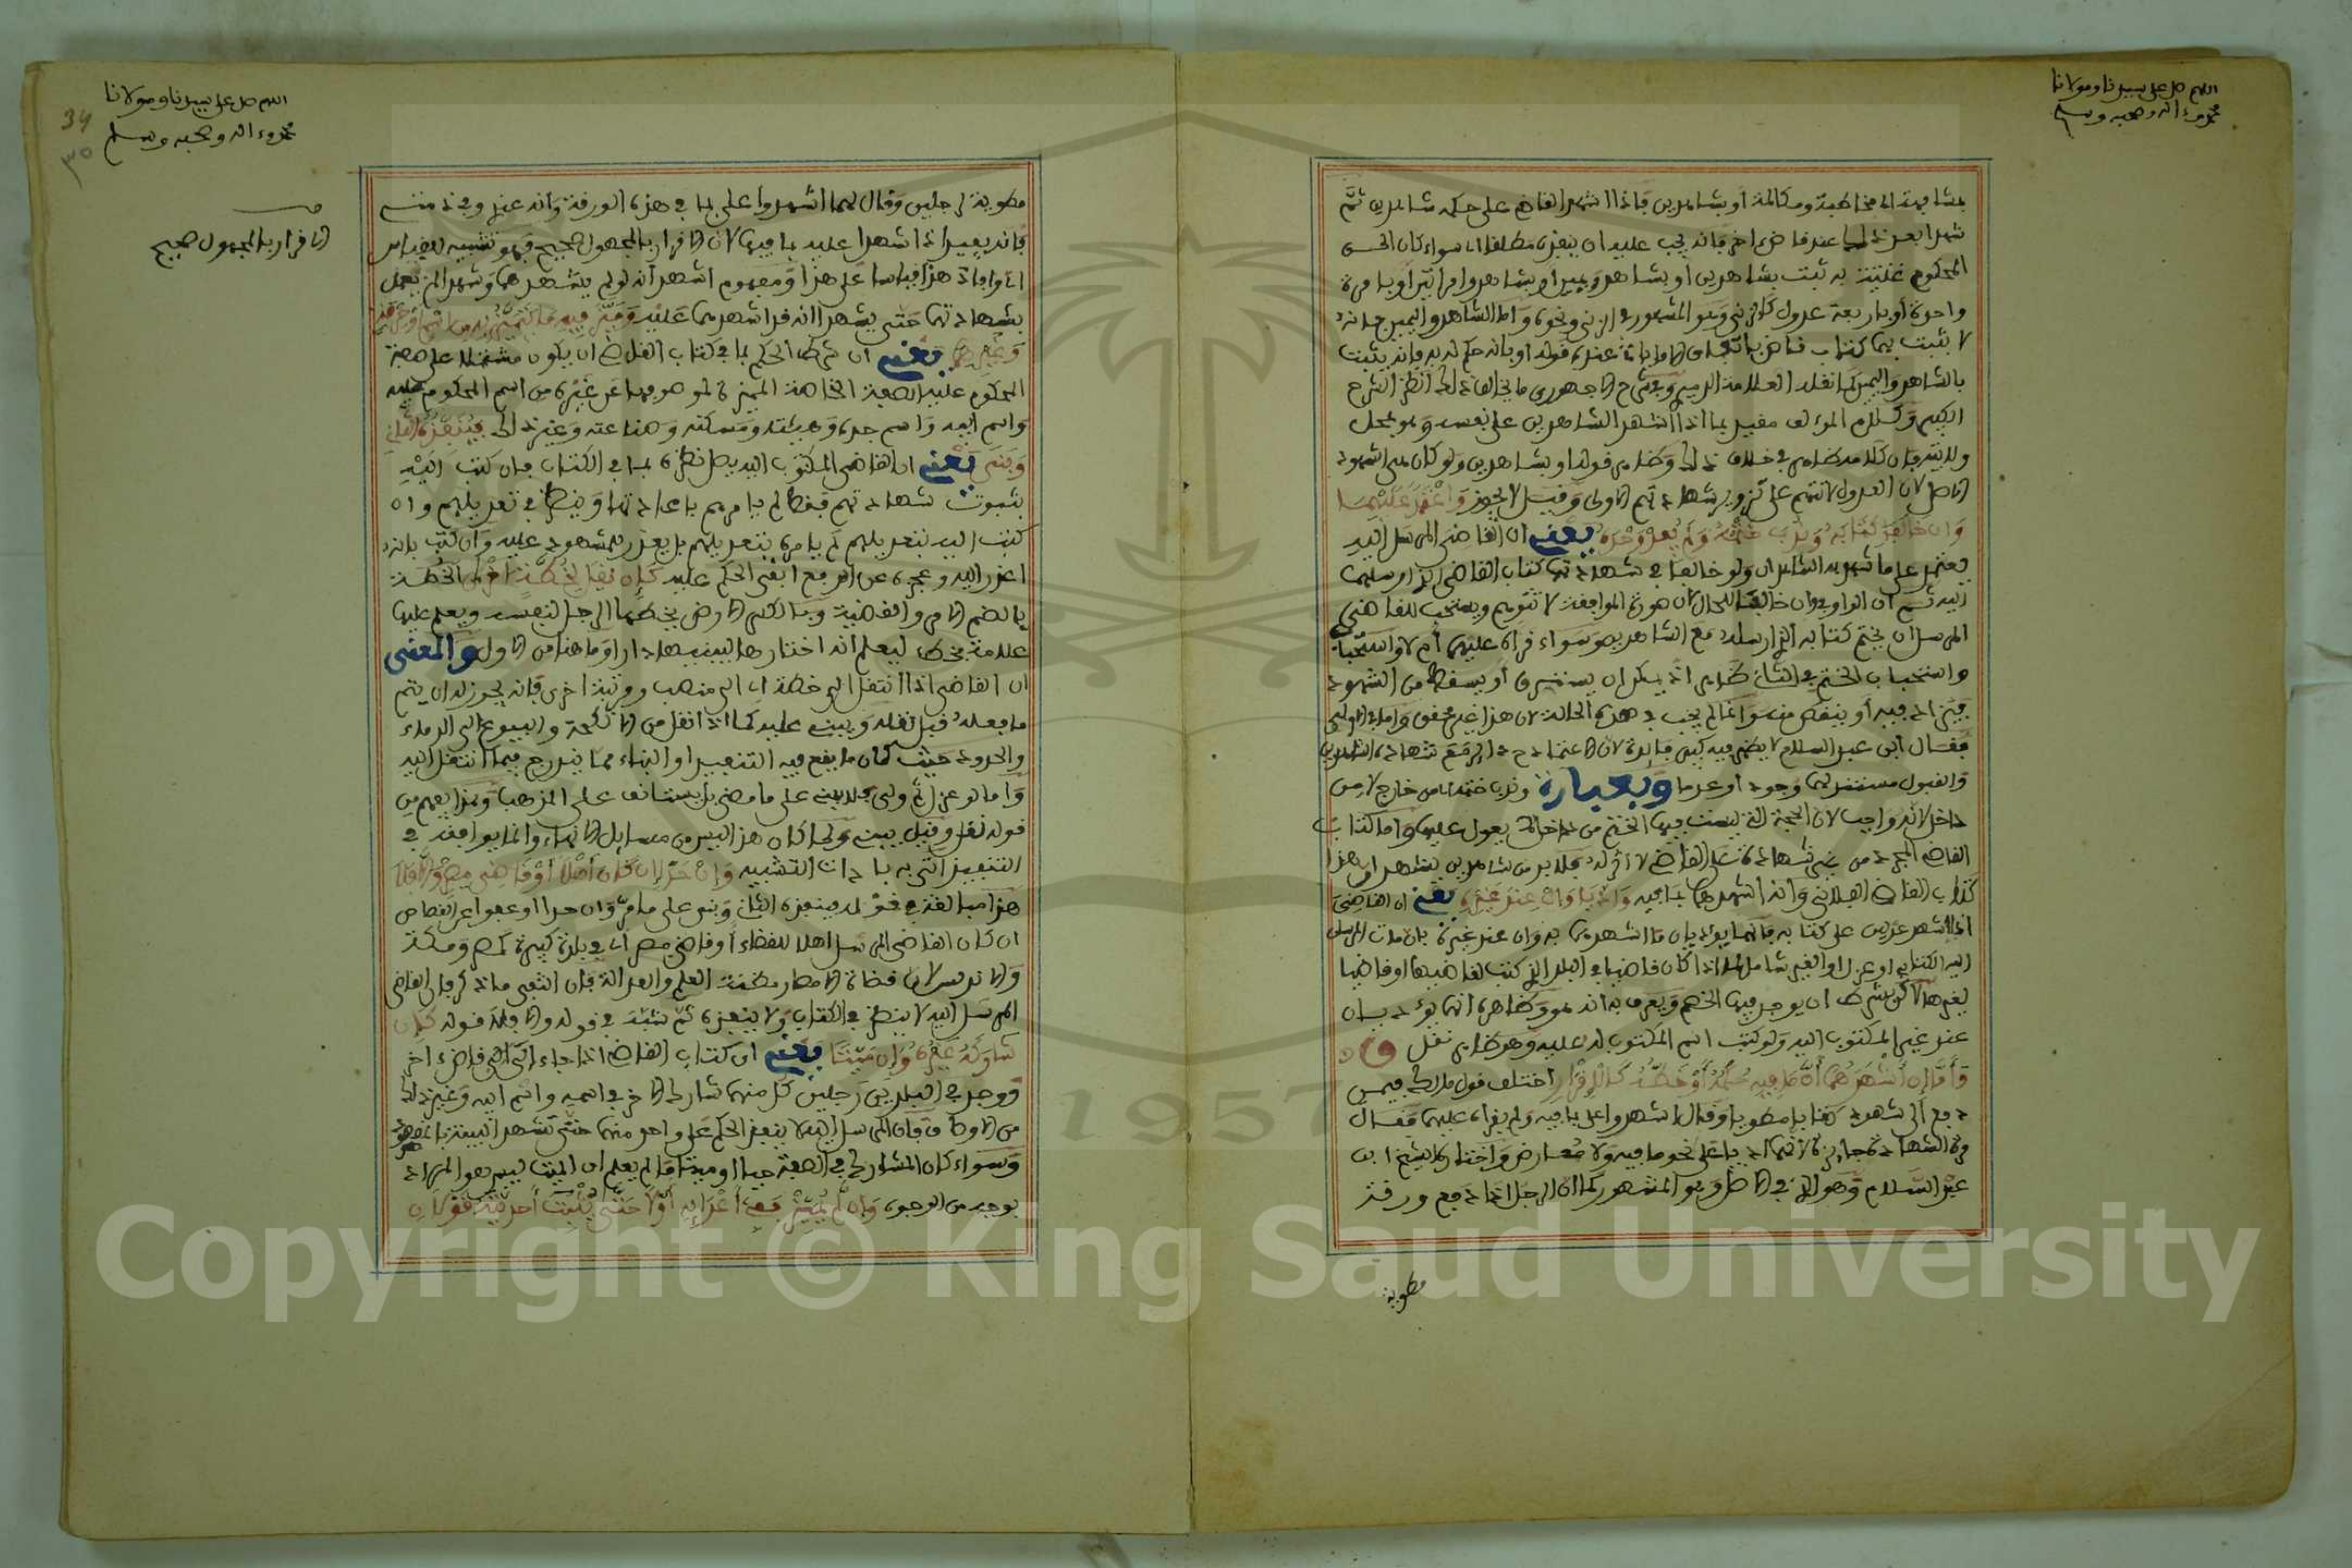 اللهم صل على سيدنا ومولانا
محمد وءاله وصحبه وسلم
بمشافهة اي مخاطبة ومكالمة أو بشاهدين فاذا اشهد القاضي على حكمه شاهدين ثم
شهدا بعد ذلك عند قاض ءاخر فانه يجب عليه ان ينفذه مطلقا اي سواء كان الحق
المحكوم به ثبت بشاهدين او بشاهد ويمين او بشاهد وامراتين أو بامرة
واحدة أو باربعة عدول كالزنى وهو المشهور في الزنى ونحوه وأما الشاهد واليمين فانه
لا يثبت بهما كتاب قاض
بالشاهد واليمين كما نقله العلامة وفي شرح الاجهوري ما يخالف ذلك انظر الشرح
الكبير وكلام المؤلف مقيد بما اذا اشهد الشاهدين على نفسه وهو بمحل
ولايته فان كلامه ظاهر في خلاف ذلك وظاهر قوله او بشاهدين ولو كان هي الشهود
الاصل لان العدول لا تتهم على شهادتهم الاولى وقيل لا يجوز وَاعْتَمَدَ عَلَيْهِمَا
وَإن خالفا كتابه وَنُدِبَ خَتْمُهُ وَلَمْ يُفِدْ وَحْدَهُ يعني ان القاضي المرسل اليه
يعتمد على ما شهد به الشاهدان ولو خالفا في شهادتهما كتاب القاضي الذي ارسلهما
اليه ثم ان الواو في وان خالفا للحال لان صورة الموافقة لا تتوهم ويستحب للقاضي
المرسل ان يختم كتابه الذي ارسله مع الشاهدين وسواء قرأه عليهما أم لا واستحبا
واستحباب الختم في الثاني ظاهر اذ يمكن ان يسرق أو يسقط من الشهود
فيزاد فيه أو ينقص منه وانما لم يجب في هذه الحالة لان هذا غير محقق واما في الاولى
فقال ابن عبد السلام لا يظهر فيه كبير فائدة لان الاعتماد ح د انما يقع شهادة الشاهدين
والقبول مستقر لهما وجود أو عدما وبعبارة وندب ختمه من خارج لا من
داخل لانه واجب لان الحجة التي ليست فيها الختم من داخل لا يعول عليها واما كتاب
القاضي المجرد من غير شهادة على القاضي لا اثر له فلا بد من شاهدين يشهدا ان هذا
كتاب القاضي الفلاني وانه اشهدهما بما فيه وَأَدَّيَا وَإِنْ عِنْدَ غَيْرِهِ يعني ان القاضي
اذا اشهد عدلين على كتابه فانهما يؤديان ما اشهدهما به وان عند غيره بان مات المرسل
اليه الكتاب او عزل او الغير شامل لما اذا كان قاضيا في البلد الذي كتب لقاضيها او قاضيا
لغيرها لاكن بشرط ان يوجد فيها الخصم ويعرف به انه هو وظاهره انهما يؤديان
عند غير المكتوب اليه ولو كتب اسم المكتوب له عليه وهو ظاهر نقل ق
وَأَفَادَ إن أَشْهَدَهُمَا أَنَّ مَا فِيهِ حُكْمُهُ أَوْ خَطُّهُ كَالإِقْرَارِ اختلف قول مالك فيمن
دفع الى شهود كتابا مطويا وقال اشهدوا على بما فيه ولم يقراه عليهما فقال
مرة الشهادة جايزة لانهما اديا على نحو ما فيه ولا معارض واختاره الشيخ ابن
عبد السلام وهو الذي في الاصل وهو المشهور كما ان الرجل اذا دفع ورقة
مطوية
اللهم صل على سيدنا ومولانا
محمد وءاله وصحبه وسلم
34
٣٥
الاقرار بالمجهول صحيح
مطوية لرجلين وقال لهما اشهدوا على بما في هذه الورقة وانه عندي وفي ذمتي
فانه يفيد اذا شهدا عليه بما فيها لان الاقرار بالمجهول صحيح فهو تشبيه لقياس
اي وافاد هذا قياسا على هذا ومفهوم اشهد انه لو لم يشهدهما وشهدا لم يعمل
بشهادتهما حتى يشهدا انه قد اشهدهما عليه وَمَيَّزَ فِيهِ مَا يَتَمَيَّزُ بِهِ مِن اسْمٍ أَوْ حِرْفَةٍ
وَغَيْرِهِمَا يعني ان شرط الحكم بما في كتاب القاضي ان يكون مشتملا على صفة
المحكوم عليه الصفة الخاصة المميزة له وهو فيها عن غيره من اسم المحكوم عليه
واسم ابيه واسم جده وهيئته ومسكنه وصناعته وغير ذلك فَيُنَفِّذُهُ الثَّانِي
وَبَنَى يعني ان القاضي المكتوب اليه يصل نظره بما في الكتاب فان كتب اليه
بثبوت شهادتهم فقط لم يامرهم باعادتها وينظر في تعديلهم وان
كتب اليه بتعديلهم لم يامره بتعديلهم بل يعذر للمشهود عليه وان كتب بانه
اعذر اليه وعجزه عن الدفع ابقى الحكم عليه كَأَن نُقِلَ لِخُطَّةٍ أُخْرَى الخطة
بالضم الامر والقضية وبالكسر الارض يختطها الرجل لنفسه ويعلم عليها
علامة بخط ليعلم انه اختارها ليبنيها دارا وما هنا من الاول والمعنى
ان القاضي اذا انتقل الى خطة اي الى منصب ورتبة اخرى فانه يجوز له ان يتم
ما فعله قبل نقله ويبني عليه كما اذا انتقل من الانكحة والبيوع الى الدماء
والحدود حيث كان ما يقع فيه التنفيذ او البناء مما يندرج فيما انتقل اليه
واما لو عزل ثم ولى فلا يبني على ما مضى بل يستانف على المذهب وهذا يفهم من
قوله نقل وقيل يبني ولما كان هذا ليس من مسايل الانهاء وانما يوافقه في
التنفيذ اتى به باداة التشبيه وَإِنْ حَدًّا إِن كَانَ أَهْلًا أَوْ قَاضِيَ مِصْرٍ وَإِلَّا فَلَا
هذا مبالغة في قوله فينفذه الثاني وبنى على ما مر وان حدا او عفوا عن قصاص
ان كان القاضي المرسل اهلا للقضاء أو قاضي مصر اي في بلدة كبيرة كمصر ومكة
وان لم يرسل لان قضاة الامصار مظنة العلم والعدالة فان انتفى ما ذكر فان القاضي
المرسل اليه لا ينظر في الكتاب ولا ينفذه ثم شبه في قوله والا فلا قوله كَأَن
شَارَكَهُ غَيْرُهُ وَإِن مَيِّتًا يعني ان كتاب القاضي اذا جاء الى قاض ءاخر
ووجد في البلد رجلين كل منهما شارك الاخر في اسمه واسم ابيه وغير ذلك
من الاوصاف فان المرسل اليه لا ينفذ الحكم على واحد منهما حتى تشهد البينة بانه هو
وسواء كان المشارك في الصفة حيا او ميتا ما لم يعلم ان الميت ليس هو المراد
بوجه من الوجوه وَإِن لَّمْ يُمَيِّزْ فَفِي إِعْدَائِهِ أَوْ لَا حَتَّى يُثْبِتَ أَحَدِيَّتَهُ قَوْلَانِ
Copyright © King Saud University
1957